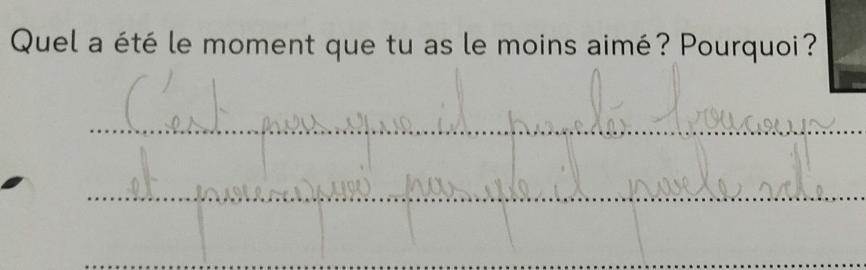 Quel a été le moment que tu as le moins aimé ? Pourquoi ?
C'est pour que il parlé boucoup
et pourquoi parsque il parle vite